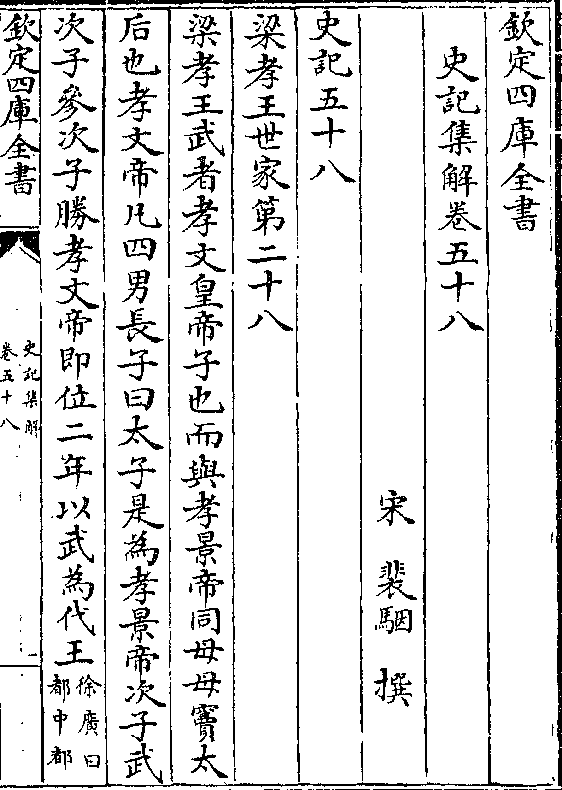 欽定四庫全書
史記集解卷五十八
宋 裴駰 撰
史記五十八
梁孝王世家第二十八
梁孝王武者孝文皇帝子也而與孝景帝同母母竇太
后也孝文帝凡四男長子曰太子是為孝景帝次子武
次子參次子勝孝文帝即位二年以武為代王徐廣曰都中都
欽定四庫全書
史記集解
卷五十八